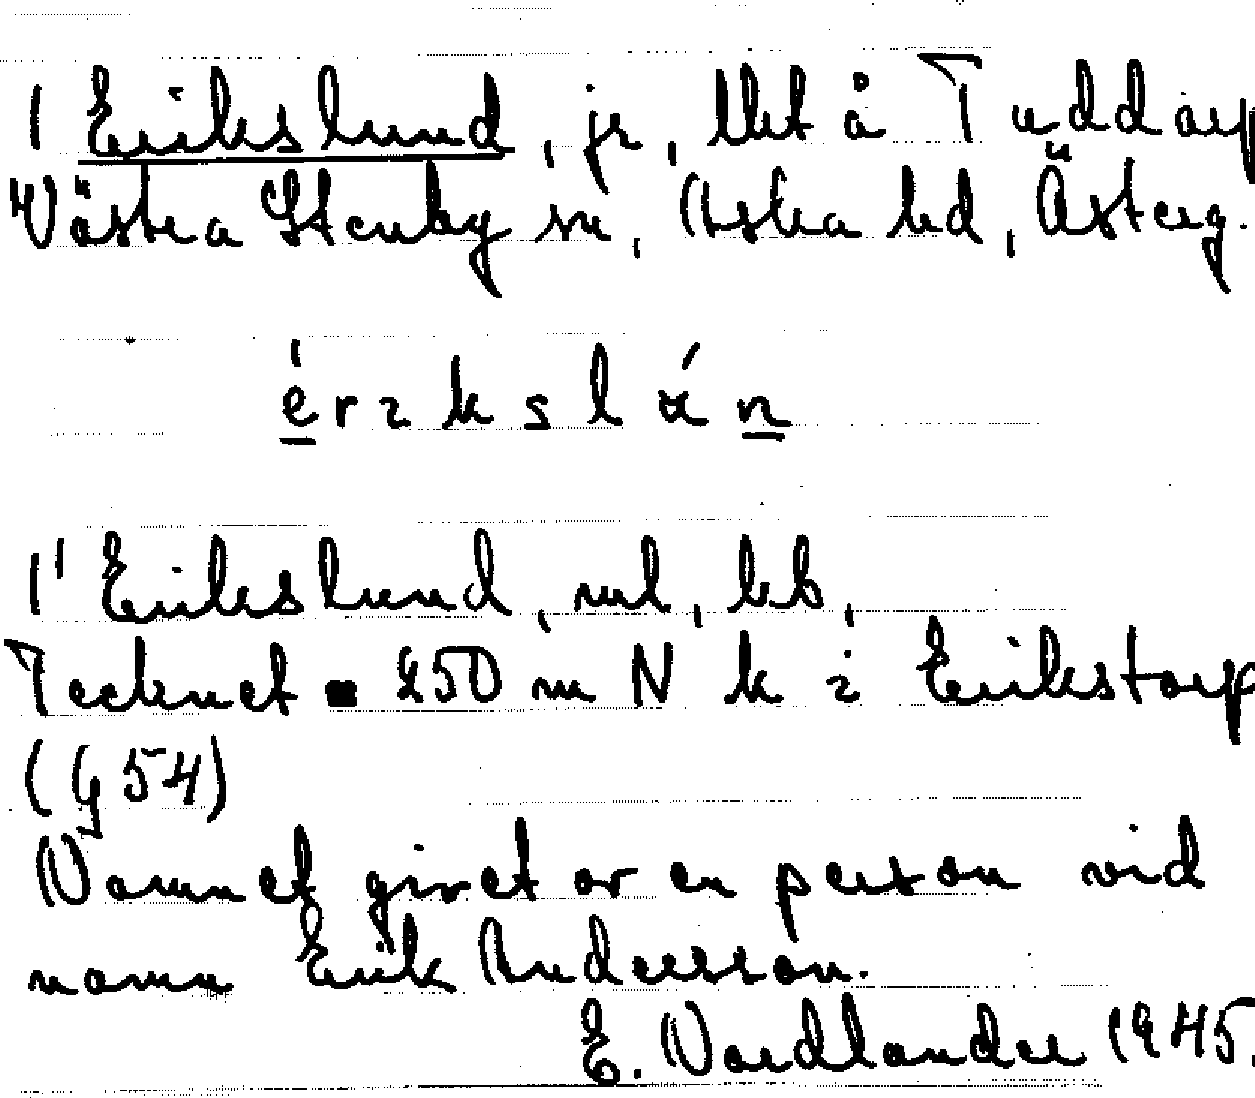 1 Erikslund, jr, lht å Tuddarp
Västra Stenby sn, Aska hd, Österg.
érıkslún
1' Erikslund, ml, bb,
Tecknet 250 m N k i Erikstorp
(G 54)
Namnet givet av en person vid
namn Erik Andersson.
E. Nordlander 1945.